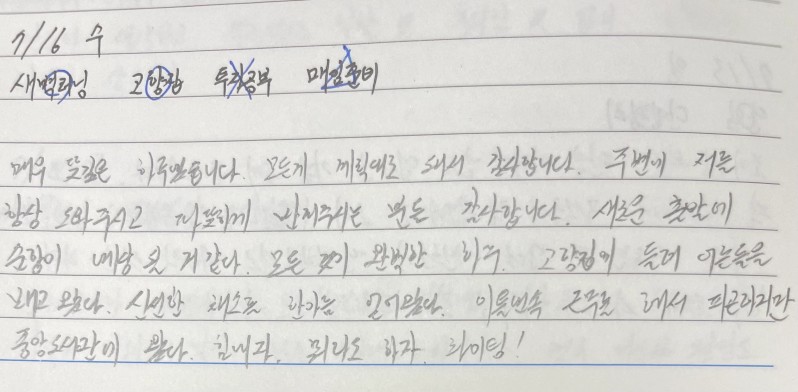 7/16 수
새벽러닝 고향집 투자공부 매일준비
매우 뜻깊은 하루였습니다. 모든게 계획대로 되서 감사합니다. 주변에 저를
항상 도와주시고 따뜻하게 반겨주시는 분들 감사합니다. 새로운 출발에
순항이 예상 된 거 같다. 모든 것이 완벽한 하루. 고향집에 들러 어른들을
뵈고 왔다. 신선한 채소를 한아름 얻어왔다. 이틀연속 근무로 해서 피곤하지만
중앙도서관에 왔다. 힘내자. 뭐라도 하자. 화이팅!